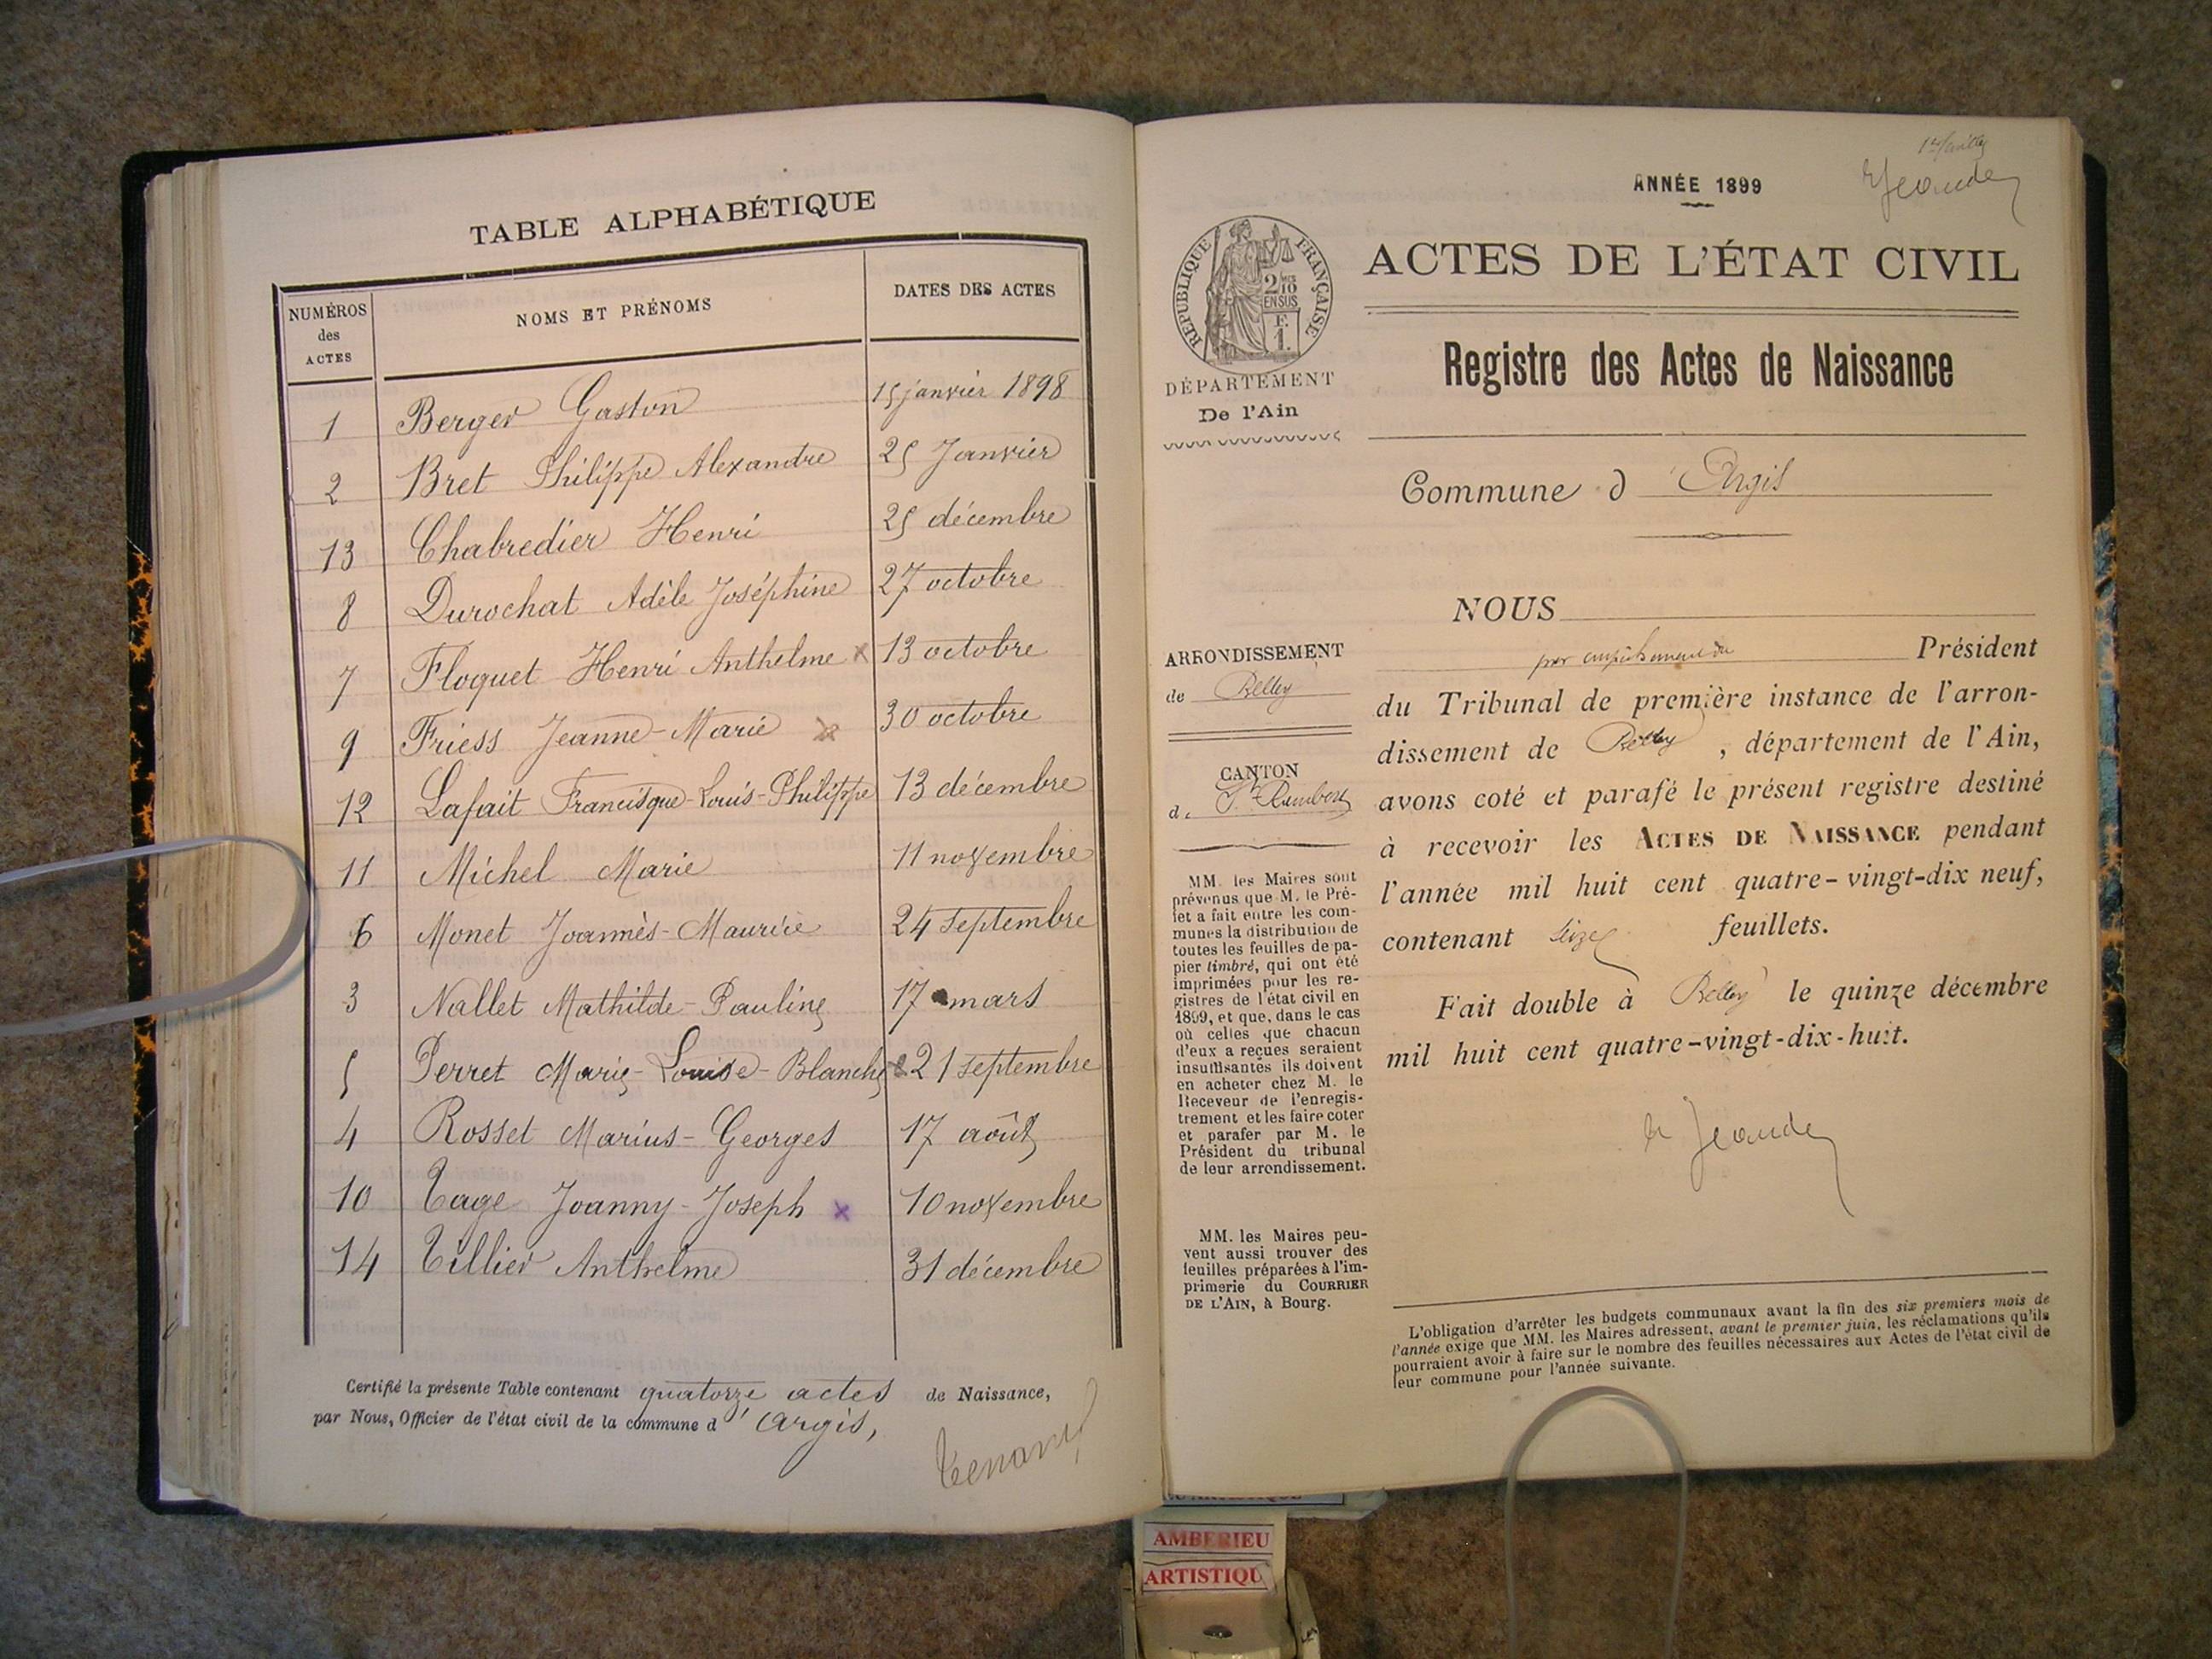 TABLE ALPHABÉTIQUE
NUMÉROS des ACTES
NOMS ET PRÉNOMS
DATES DES ACTES
1 Berger Gaston 15 janvier 1898
2 Bret Philippe Alexandre 25 Janvier
13 Chabredier Henri 25 décembre
8 Durochat Adèle Joséphine 27 octobre
7 Floquet Henri Anthelme x 13 octobre
9 Friess Jeanne-Marie x 30 octobre
12 Lafait Francisque-Louis-Philippe 13 décembre
11 Michel Marie 11 novembre
6 Monet Joannès-Maurice 24 septembre
3 Nallet Mathilde-Pauline 17 mars
5 Perret Marie-Louise-Blanche 21 septembre
4 Rosset Marius-Georges 17 août
10 Tage Joanny-Joseph x 10 novembre
14 Tillier Anthelme 31 décembre
Certifié la présente Table contenant quatorze actes de Naissance,
par Nous, Officier de l'état civil de la commune d'Argis,
Tenand
ANNÉE 1899
Jeandet
RÉPUBLIQUE FRANÇAISE
2/10
EN SUS
F.
1.
ACTES DE L'ÉTAT CIVIL
DÉPARTEMENT
De l'Ain
Registre des Actes de Naissance
Commune d'Argis
NOUS
par empêchement du Président
du Tribunal de première instance de l'arron-
dissement de Belley, département de l'Ain,
avons coté et parafé le présent registre destiné
à recevoir les ACTES DE NAISSANCE pendant
l'année mil huit cent quatre-vingt-dix neuf,
contenant seize feuillets.
Fait double à Belley le quinze décembre
mil huit cent quatre-vingt-dix-huit.
Jeandet
ARRONDISSEMENT
de Belley
CANTON
de St Rambert
MM. les Maires sont
prévenus que M. le Pré-
fet a fait entre les com-
munes la distribution de
toutes les feuilles de pa-
pier timbré, qui ont été
imprimées pour les re-
gistres de l'état civil en
1899, et que, dans le cas
où celles que chacun
d'eux a reçues seraient
insuffisantes ils doivent
en acheter chez M. le
Receveur de l'enregis-
trement et les faire coter
et parafer par M. le
Président du tribunal
de leur arrondissement.
MM. les Maires peu-
vent aussi trouver des
feuilles préparées à l'im-
primerie du COURRIER
DE L'AIN, à Bourg.
L'obligation d'arrêter les budgets communaux avant la fin des six premiers mois de
l'année exige que MM. les Maires adressent, avant le premier juin, les réclamations qu'ils
pourraient avoir à faire sur le nombre des feuilles nécessaires aux Actes de l'état civil de
leur commune pour l'année suivante.
AMBERIEU
ARTISTIQU